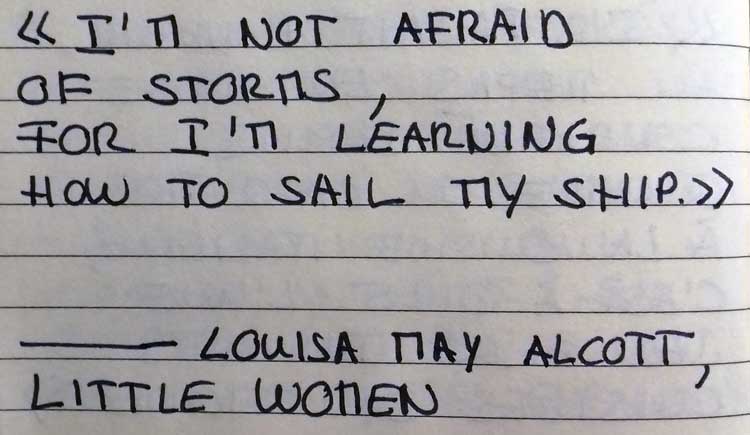 « I'M NOT AFRAID
OF STORMS,
FOR I'M LEARNING
HOW TO SAIL MY SHIP.»
——— LOUISA MAY ALCOTT,
LITTLE WOMEN